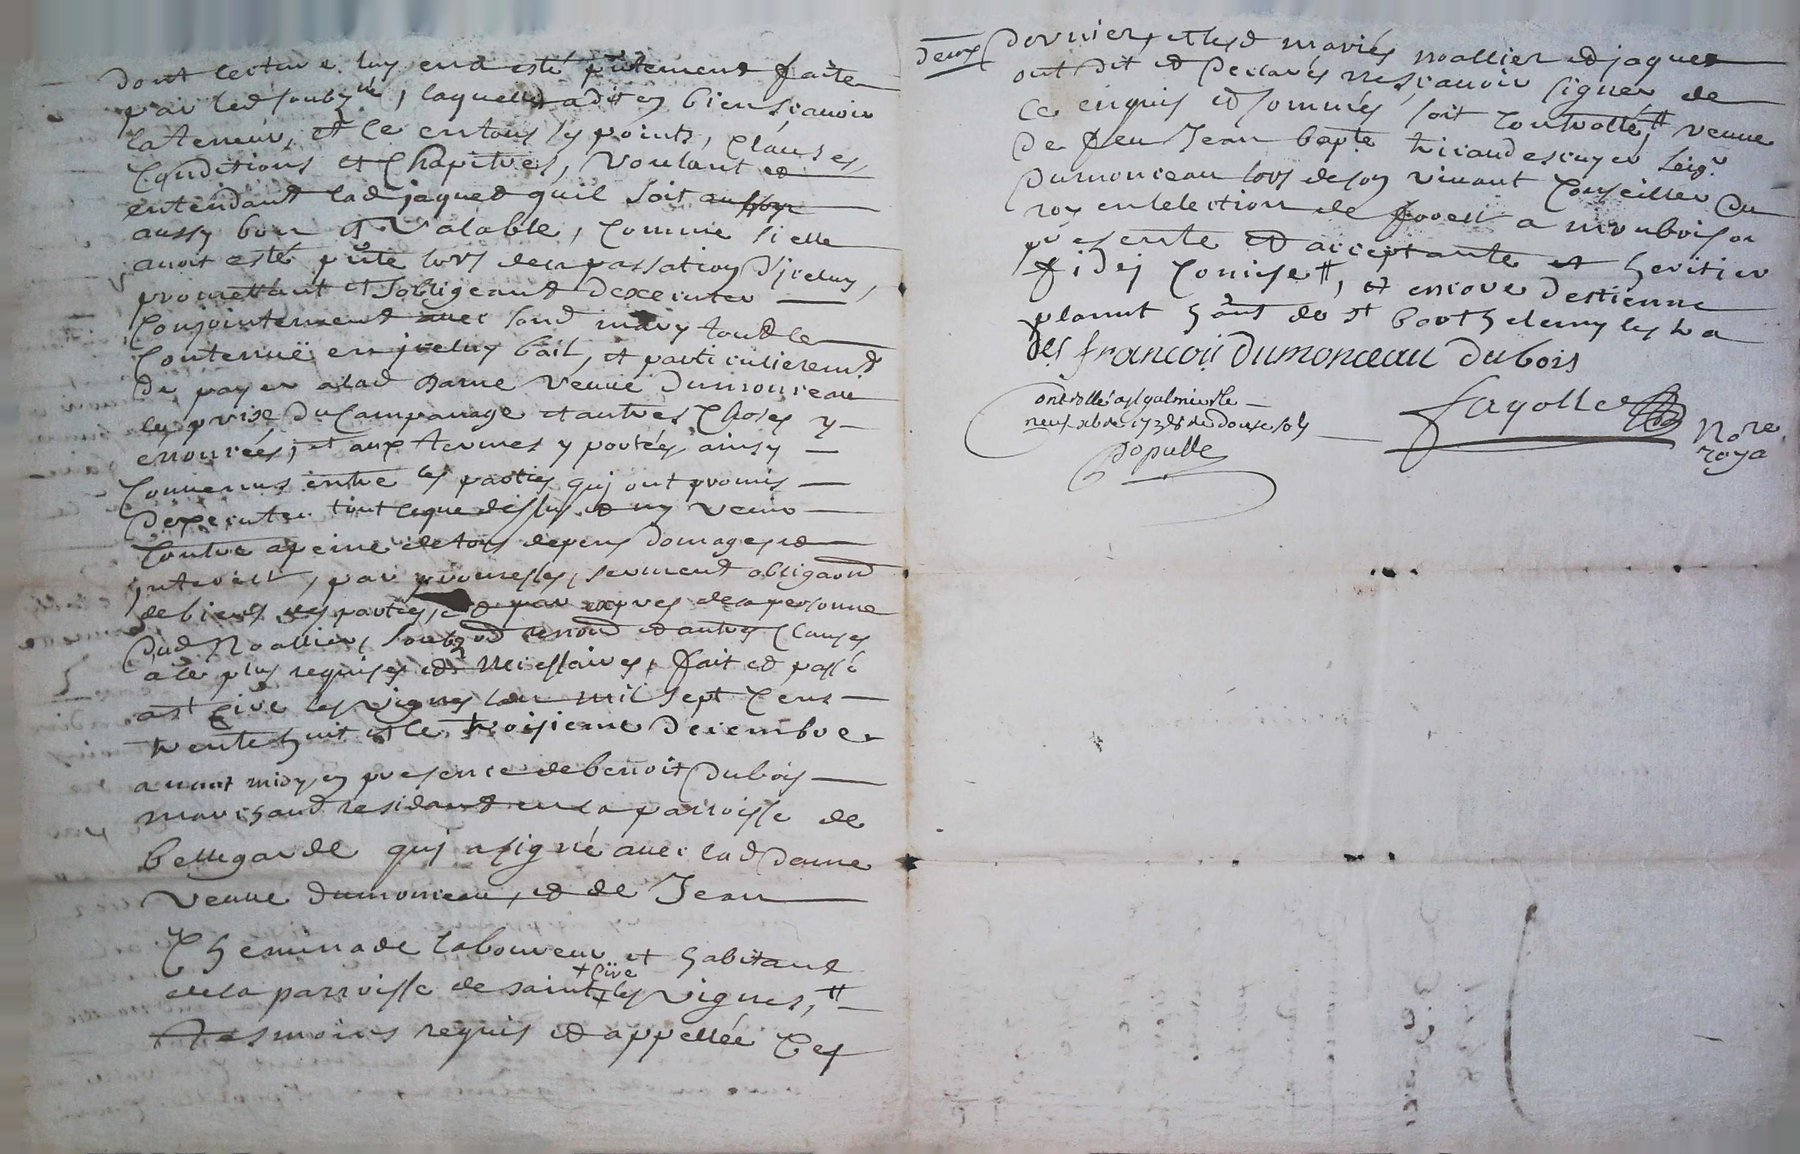 dont lecture luy en a esté p̃ntement faite
par led soubz.né, laquelle a dit en bien scavoir
la teneur, et ce en tous les points, clauses,
conditions et chapitres, voulant et
entendant lad jaquet quil soit
aussy bon et valable, comme si elle
avoit esté p̃nte lors de la passation d'jceluy,
promettant et sobligeant dexecuter
conjointement avec sond mary tout le
contenuë en jceluy bail, et particulierem.t
de payer a lad dame veuve dumonceau
les prise du campanage et autres choses y
enoncées, et aux termes y portées ainsy
convenus entre les parties qui ont promis
dexecuter tout ce que dessus et ny venir
contre a peine de tous depens domages et
jnterest, par promesses, serment obligaon
de biens des parties, et par expres de la personne
dud Noallier, soub.on renon.on et autres clauses
a ce plus requises et necessaires, fait et passé
a st Cive les vignes lan mil sept cens
trente huit et le troisieme decembre
avant midy en presence de benoit Dubois
marchand residant en la parroisse de
bellegarde qui a signé avec lad dame
veuve dumonceau, et de Jean
Cheminade laboureur et habitant
de la parroisse de saint + Cive les vignes, #
tesmoins requis et appellée Cet
deux dernier, et lesd mariés noallier et jaquet
ont dit et declarés ne scavoir signer de
ce enquis et sommés, soit controllé, # veuve
de feu Jean bapte tricaud escuyer seig.r
dumonceau lors de son vivant conseiller du
roy en lelection de forest a monbrison
presente et acceptante et heritier
fidej comise #, et encore destienne
planut h̃ant de st barthelemy les tra
des francois dumonceau dubois
Controllé a st galmier le
neuf xbre 1738 Receu douze sols
Populle
fayolle
No.re
roya